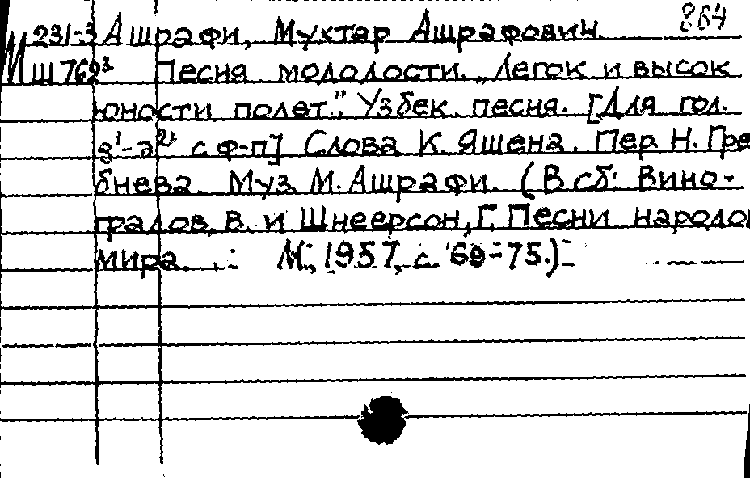 864
231-3 Ашрафи, Мухтар Ашрафович
М Ш 769³ Песня молодости. „Легок и высок
юности полет". Узбек. песня. [Для гол.
с ф-п] Слова К. Яшена. Пер. Н. Гре
бнева. Муз. М. Ашрафи. (В сб: Вино-
градов, В. и Шнеерсон, Г. Песни народо
мира. М., 1957, с. 69-75.)